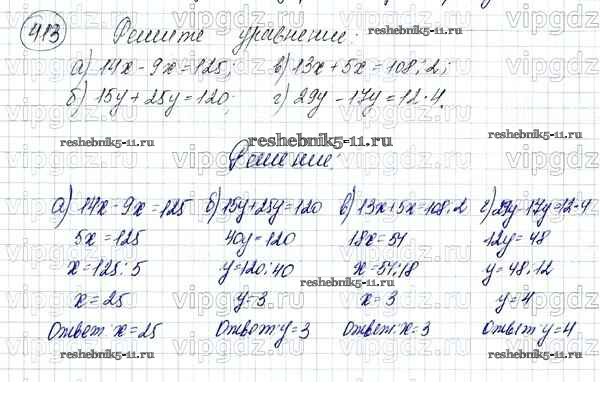 413 Решите уравнение:
а) 14x - 9x = 125; в) 13x + 5x = 108 : 2;
б) 15y + 25y = 120; г) 29y - 17y = 12 · 4.
Решение:
а) 14x - 9x = 125 б) 15y + 25y = 120 в) 13x + 5x = 108 : 2 г) 29y - 17y = 12 · 4
5x = 125 40y = 120 18x = 54 12y = 48
x = 125 : 5 y = 120 : 40 x = 54 : 18 y = 48 : 12
x = 25 y = 3 x = 3 y = 4
Ответ: x = 25 Ответ: y = 3 Ответ: x = 3 Ответ: y = 4
reshebnik5-11.ru
reshebnik5-11.ru
reshebnik5-11.ru
reshebnik5-11.ru
reshebnik5-11.ru
reshebnik5-11.ru
reshebnik5-11.ru
vipgdz